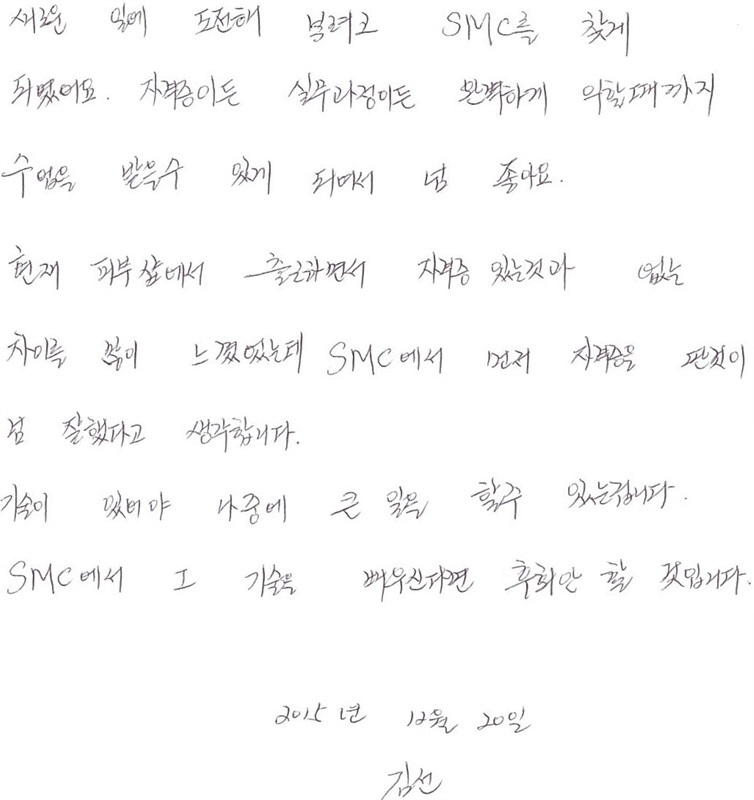 새로운 일에 도전해 볼려고 SMC를 찾게
되었어요. 자격증이든 실무과정이든 완벽하게 익힐때까지
수업을 받을수 있게 되어서 넘 좋아요.
현재 피부샾에서 출근하면서 자격증 있는것과 없는
차이를 많이 느꼈었는데 SMC에서 먼저 자격증을 딴것이
넘 잘했다고 생각합니다.
기술이 있어야 나중에 큰 일을 할수 있는겁니다.
SMC에서 그 기술을 배우신다면 후회안 할 것입니다.
2015년 12월 20일
김선